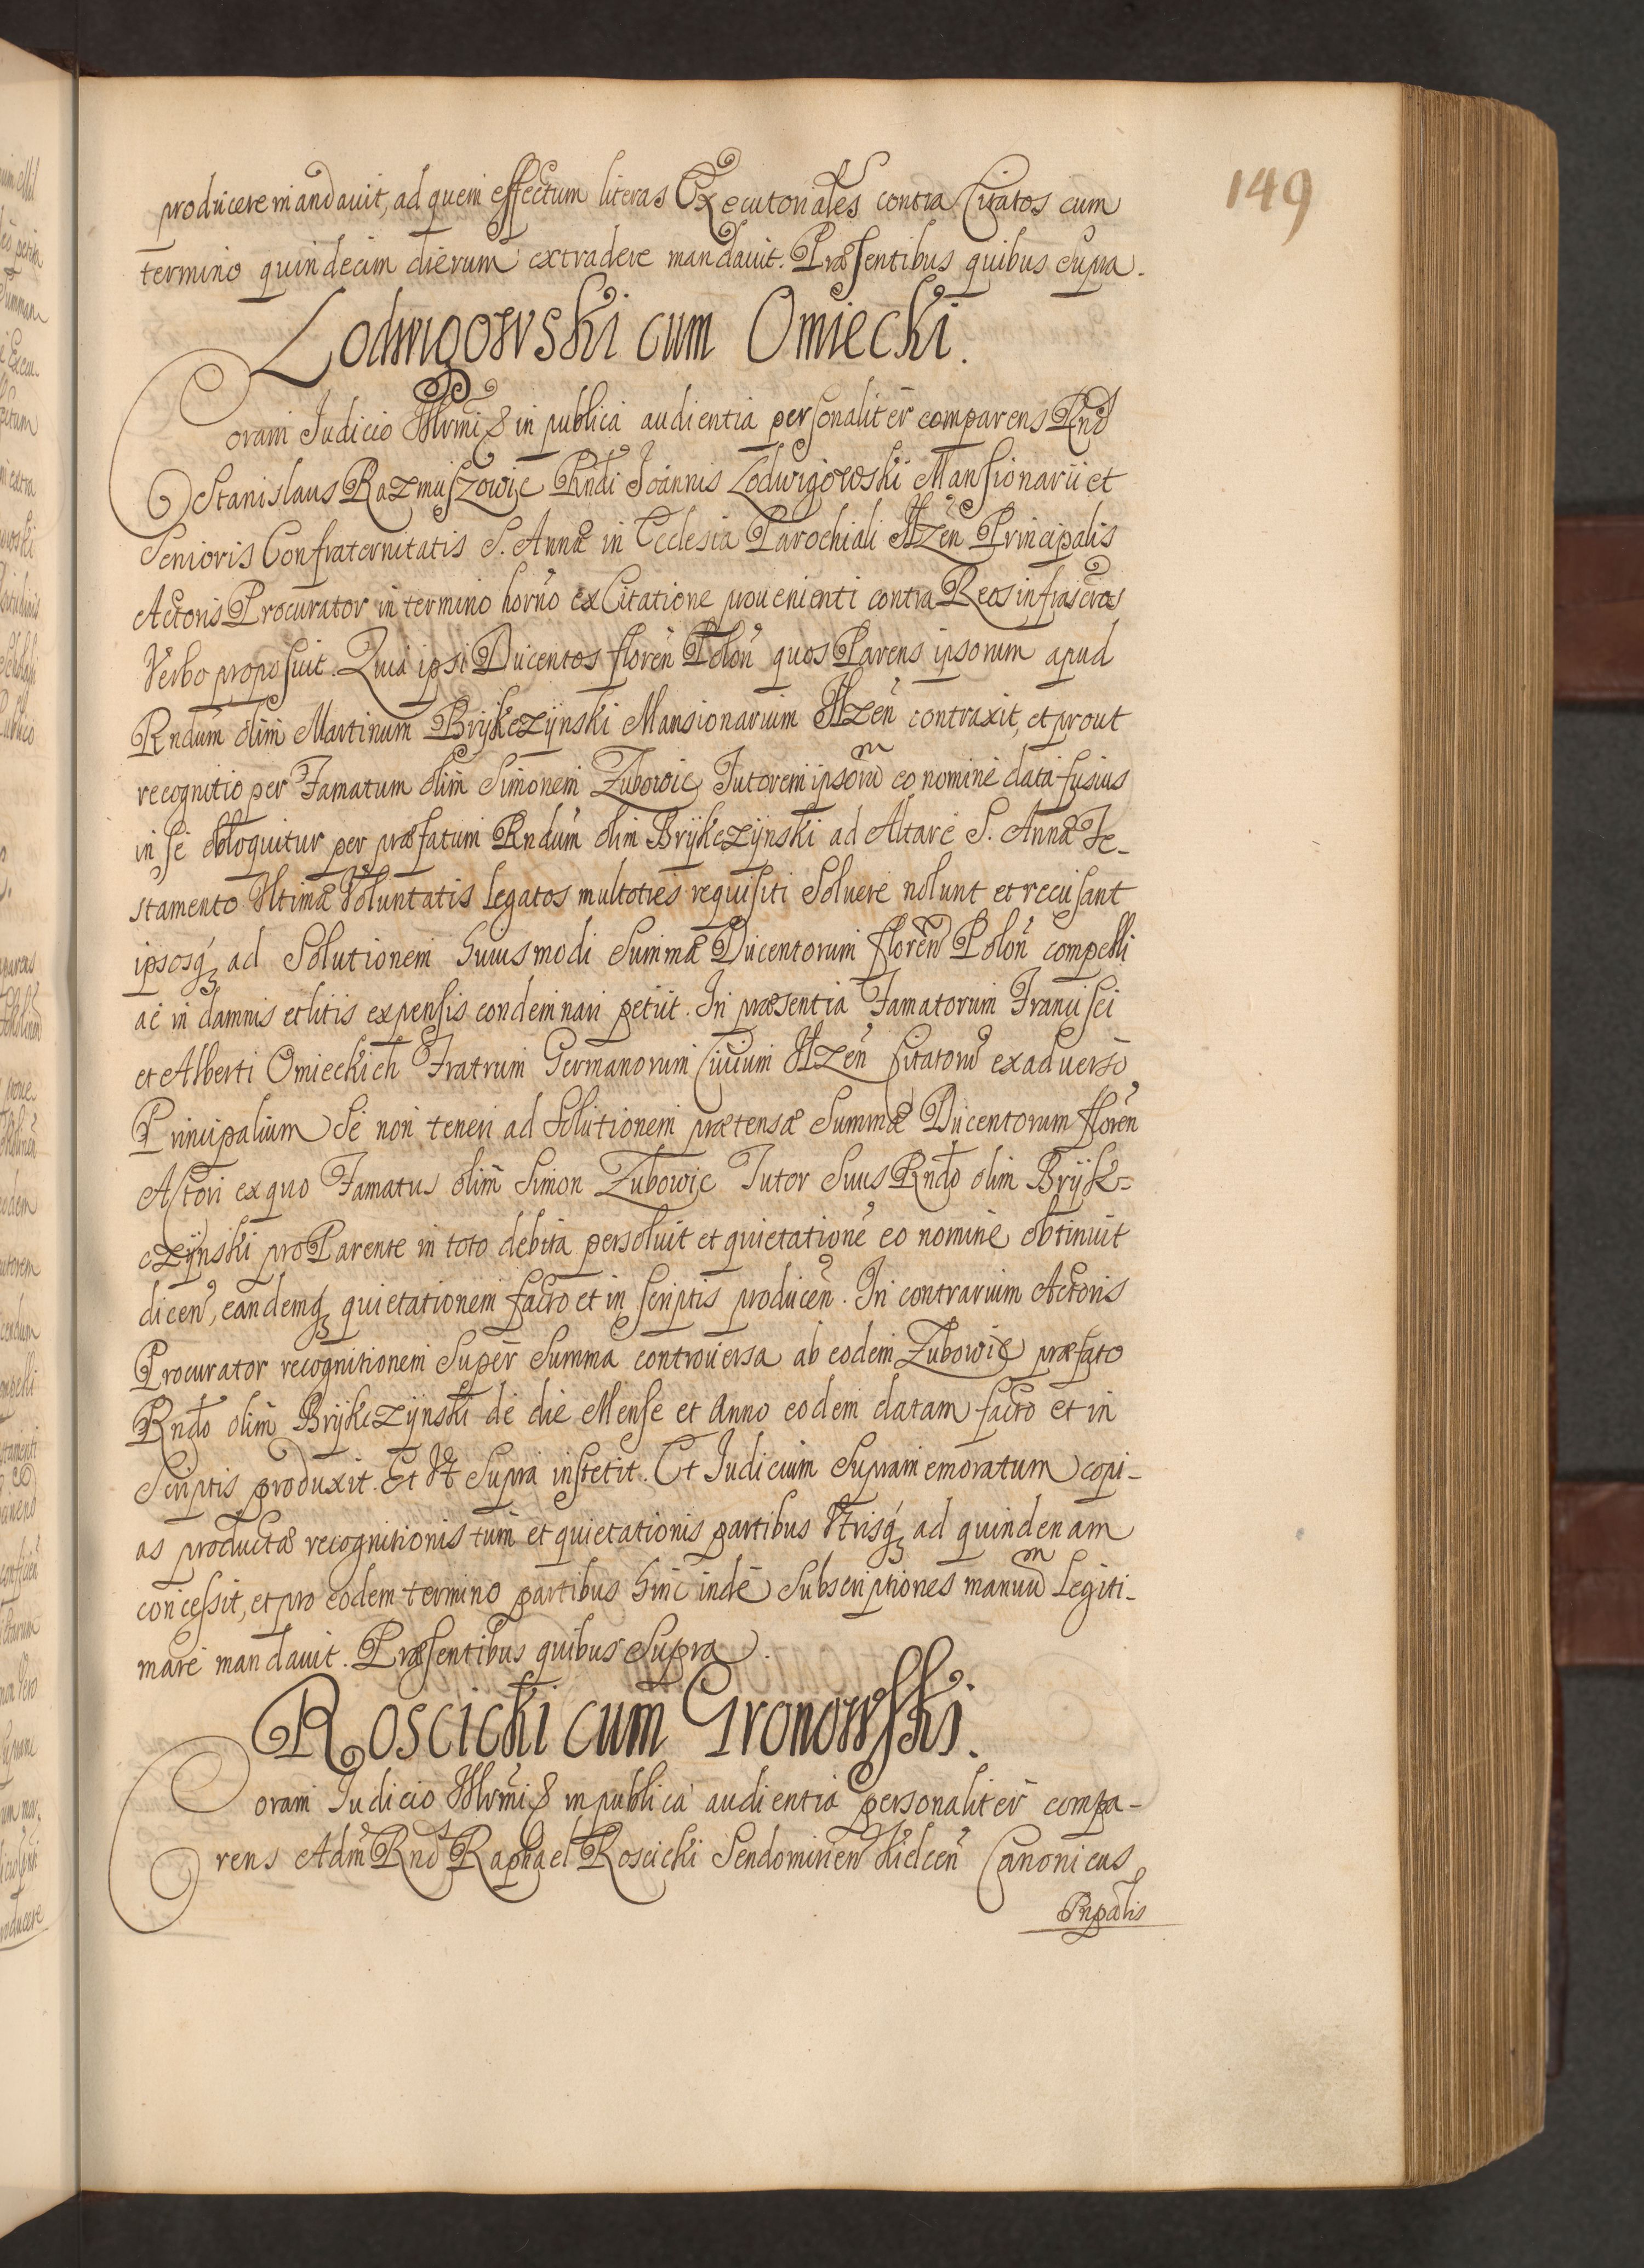 149
producere mandauit, ad quem effectum literas Executoriales contra Citatos cum
termino quindecim dierum extradere mandauit. Præsentibus quibus Supra.
Lodwigowski cum Omiecki.
Coram Judicio Illrmi & in publica audientia personaliter comparens Rnd
Stanislaus Razmuszowic Rndi Joannis Lodwigowski Mansionarii et
Senioris Confraternitatis S. Annæ in Ecclesia Parochiali Ilzen Principalis
Actoris Procurator in termino horno ex Citatione prouenienti contra Reos infrascros
Verbo proposuit. Quia ipsi Ducentos floren Polon quos Parens ipsorum apud
Rndum olim Martinum Brijkczijnski Mansionarium Ilzen contraxit, et prout
recognitio per Famatum olim Simonem Zubowic Tutorem ipsorum eo nomine data fusius
in se obloquitur per præfatum Rndum olim Brijkczijnski ad Altare S. Annæ Te-
stamento Ultimæ Voluntatis legatos multoties requisiti Soluere nolunt et recusant
ipsosq ad Solutionem huiusmodi Summæ Ducentorum floren Polon compelli
ac in damnis et litis expensis condemnari petiit. In præsentia Famatorum Francisci
et Alberti Omieckich Fratrum Germanorum Ciuium Ilzen Citatoru ex aduerso
Principalium Se non teneri ad Solutionem prætensæ Summæ Ducentorum floren
Actori ex quo Famatus olim Simon Zubowic Tutor Suus Rndo olim Brijk=
czijnski pro Parente in toto debita persoluit et quietatione eo nomine obtinuit
dicen, eandemq quietationem facto et in scriptis producen. In contrarium Actoris
Procurator recognitionem Super Summa controuersa ab eodem Zubowic præfato
Rndo olim Brijkczijnski de die Mense et Anno eodem datam facto et in
Scriptis produxit. Et Ut Supra institit. Et Judicium Supramemoratum copi-
as productæ recognitionis tum et quietationis partibus Utrisq ad quindenam
concessit, et pro eodem termino partibus hinc inde Subscriptiones manuum Legiti-
mare mandauit. Præsentibus quibus Supra.
Roscicki cum Gronowski.
Coram Judicio Illrmi & in publica audientia personaliter compa-
rens Adm Rnd Raphael Roscicki Sendomirien Kielcen Canonicus
Prpalis